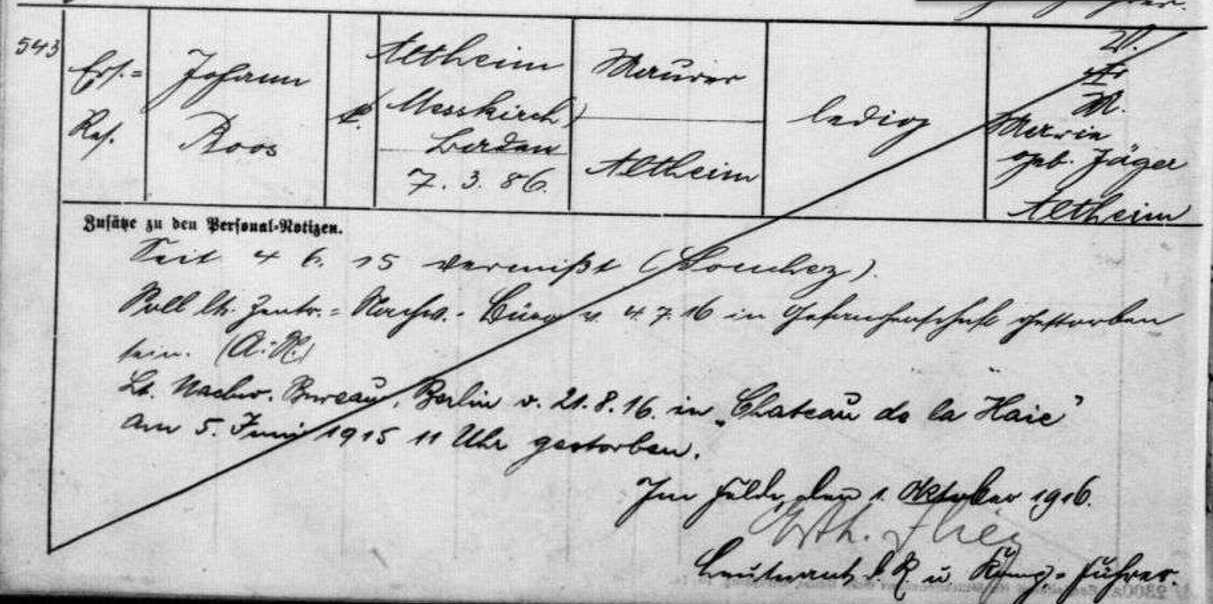 543
Ers.=
Res.
Johann
Roos
k.
Altheim
Messkirch)
Baden
7. 3. 86.
Maurer
Altheim
ledig
V.
M.
Maria
geb. Jäger
Altheim
Zusätze zu den Personal-Notizen.
Seit 4 6. 15 vermißt (Souchez).
Soll lt. Zentr.= Nachw.- Büro v. 4.7.16 in Gefangenschaft gestorben
sein. (A.N.)
Lt. Nachw. Bureau, Berlin v. 21.8.16. in „Chateau de la Haie"
am 5. Juni 1915 11 Uhr gestorben.
Im Felde, den 1. Oktober 1916.
Leutnant d. R. u. Komp.= Führer.